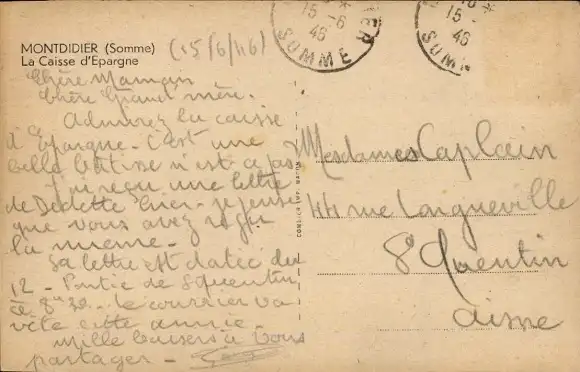 MONTDIDIER (Somme)
La Caisse d'Epargne
(15/6/46)
15-6
46
SOMME
15-
46
SOMM
Chère Maman
Chère Grand'mère.
Admirez la caisse
d'Epargne - C'est une
belle bâtisse n'est ce pas
J'ai reçu une lettre
de Dedette hier - je pense
que vous avez reçu
la même -
Sa lettre est datée du
12 - Partie de St Quentin
à 8h30 - le courrier va
vite cette année -
Mille baisers à vous
partager -
COMBIER IMP. MACON
Mesdames Caplain
44 rue Longueville
St Quentin
Aisne